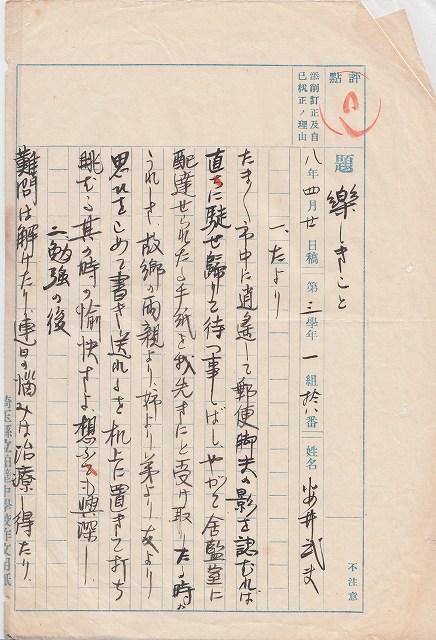 評點
添削訂正及自
己校正ノ理由
題 樂しきこと
八年四月廿日稿 第三學年一組拾八番 姓名 安井武夫
不注意
一、たより
たま〳〵市中に逍遙して郵便脚夫の影を認むれば
直ちに駛せ歸りて待つ事しばし、やがて舍監室に
配達せられたる手紙を我先きにと受け取りたる時の
うれしさ、故鄕の兩親より、姉より弟より友より
思ひをこめて書き送れるを机上に置きて打ち
眺むる其の時の愉快さよ、想ふても興深し、
二、勉强の後
難問は解けたり、連日の惱みは治療し得たり、
埼玉縣立粕壁中學校作文用紙